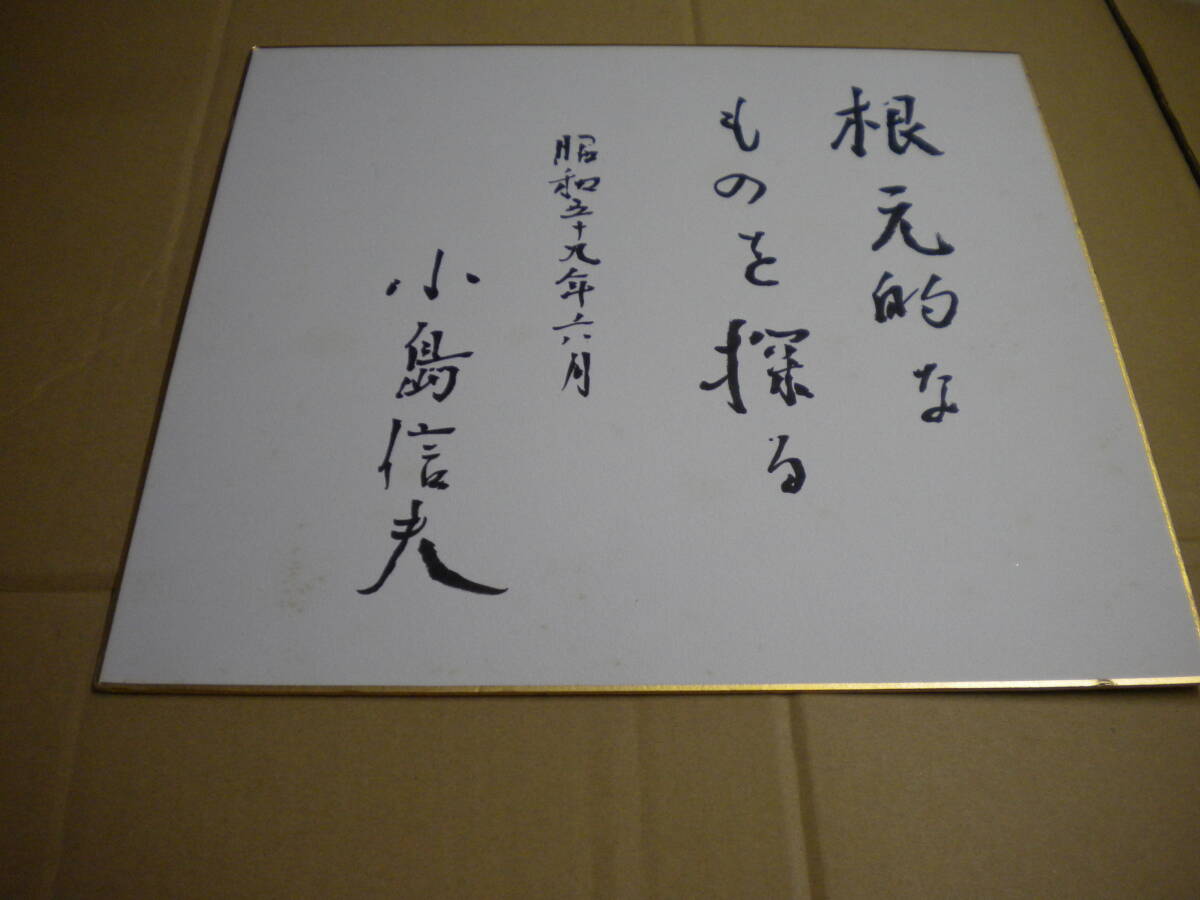 根元的な
ものを探る
昭和五十九年六月
小島信夫